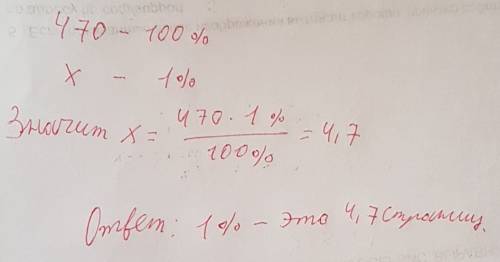 470 - 100%
x - 1%
Значит x = 470 · 1% / 100% = 4,7
Ответ: 1% - это 4,7 страниц.